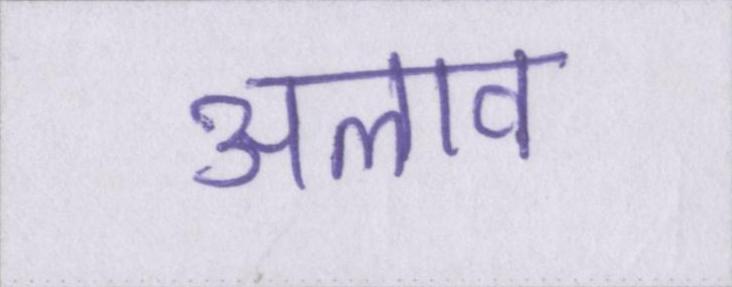 अलाव